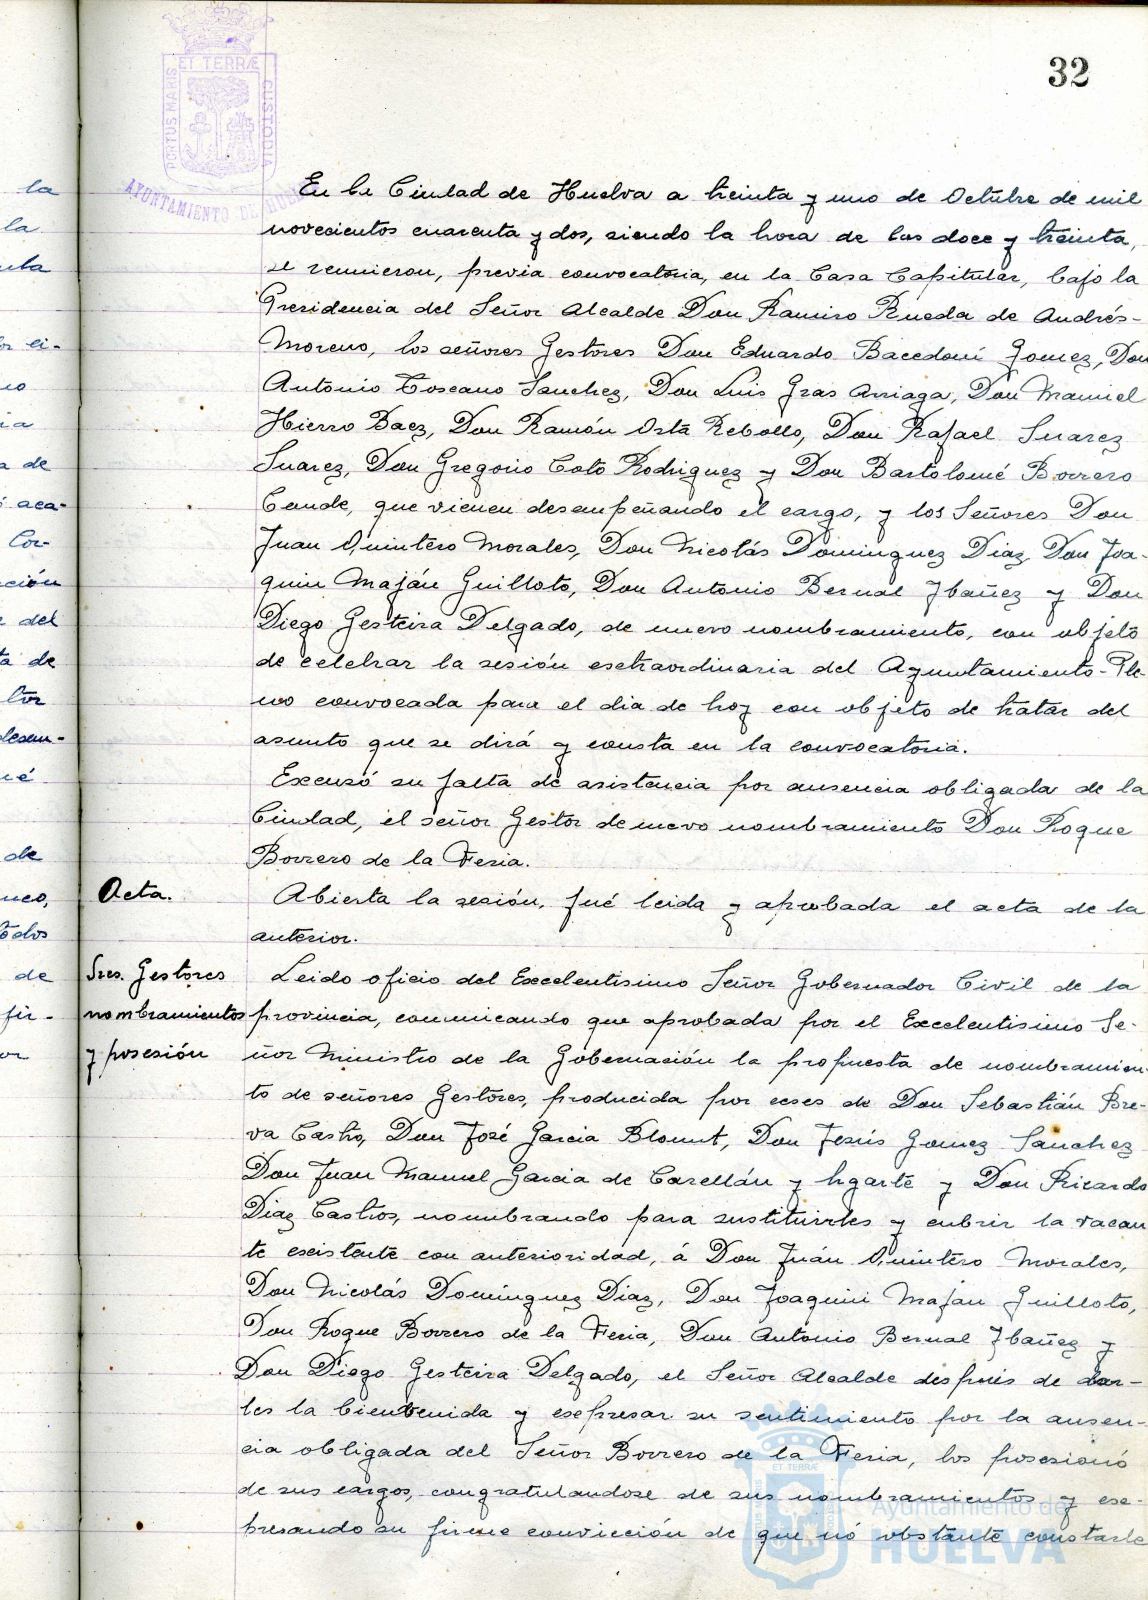 32
ET TERRÆ
PORTUS MARIS
CUSTODIA
AYUNTAMIENTO DE HUELVA
En la Ciudad de Huelva a treinta y uno de Octubre de mil
novecientos cuarenta y dos, siendo la hora de las doce y treinta,
se reunieron, previa convocatoria, en la Casa Capitular, bajo la
Presidencia del Señor Alcalde Don Ramiro Rueda de Andrés-
Moreno, los señores Gestores Don Eduardo Bacedoni Gomez, Don
Antonio Toscano Sanchez, Don Luis Gras Arriaga, Don Manuel
Hierro Baez, Don Ramón Orta Rebollo, Don Rafael Suarez
Suarez, Don Gregorio Coto Rodriguez y Don Bartolomé Borrero
Conde, que vienen desempeñando el cargo, y los Señores Don
Juan Quintero Morales, Don Nicolás Dominguez Diaz, Don Joa-
quin Maján Guilloto, Don Antonio Bernal Ybañez y Don
Diego Gesteira Delgado, de nuevo nombramiento, con objeto
de celebrar la sesión esctraordinaria del Ayuntamiento-Ple-
no convocada para el dia de hoy con objeto de tratar del
asunto que se dirá y consta en la convocatoria.
Excusó su falta de asistencia por ausencia obligada de la
Ciudad, el señor Gestor de nuevo nombramiento Don Roque
Borrero de la Feria.
Acta. Abierta la sesión, fué leida y aprobada el acta de la
anterior.
Sres. Gestores Leido oficio del Excelentisimo Señor Gobernador Civil de la
nombramientos provincia, comunicando que aprobada por el Excelentisimo Se-
y posesión ñor Ministro de la Gobernación la propuesta de nombramien-
to de señores Gestores, producida por ceses de Don Sebastián Bre-
va Castro, Don José Garcia Blount, Don Jesús Gomez Sanchez
Don Juan Manuel Garcia de Carellán y Hgarte y Don Ricardo
Diaz Castros, nombrando para sustituirles y cubrir la vacan
te escistente con anterioridad, á Don Juán Quintero Morales,
Don Nicolás Domínguez Diaz, Don Joaquin Majan Guilloto,
Don Roque Borrero de la Feria, Don Antonio Bernal Ybañez y
Don Diego Gesteira Delgado, el Señor Alcalde después de dar-
les la bienvenida y escpresar su sentimiento por la ausen-
cia obligada del Señor Borrero de la Feria, los posesionó
de sus cargos, congratulandose de sus nombramientos y esc-
presando su firme convicción de que nó obstante constarle
Ayuntamiento de
HUELVA
la
la
de
aca-
Cor-
ción
del
de
desem-
de
de
fir-